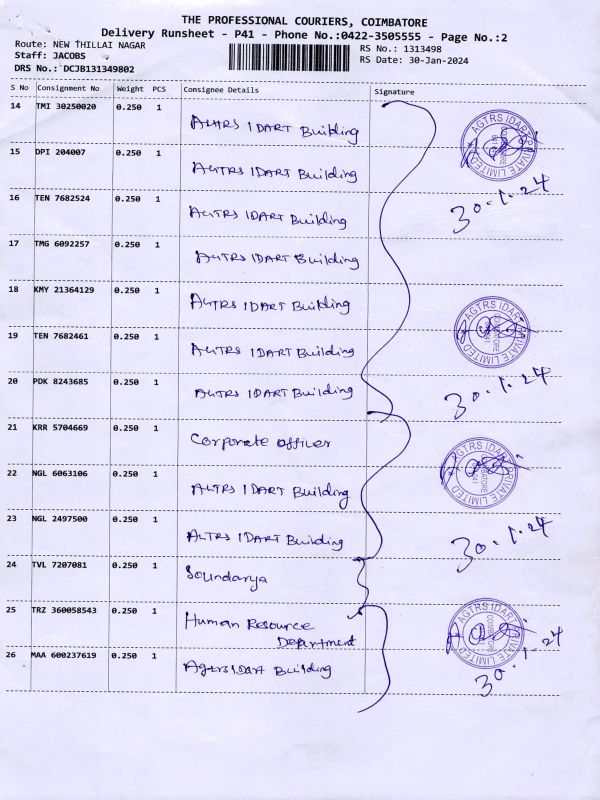 THE PROFESSIONAL COURIERS, COIMBATORE
Delivery Runsheet - P41 - Phone No.:0422-3505555 - Page No.:2
Route: NEW THILLAI NAGAR
Staff: JACOBS
DRS No.: DCJB131349802
RS No.: 1313498
RS Date: 30-Jan-2024
S No Consignment No Weight PCS Consignee Details Signature
14 TMI 30250020 0.250 1 AGTRS IDART Building
15 DPI 204007 0.250 1 AGTRS IDART Building
16 TEN 7682524 0.250 1 AGTRS IDART Building
17 TMG 6092257 0.250 1 AGTRS IDART Building
18 KMY 21364129 0.250 1 AGTRS IDART Building
19 TEN 7682461 0.250 1 AGTRS IDART Building
20 PDK 8243685 0.250 1 AGTRS IDART Building
21 KRR 5704669 0.250 1 Corporate officer
22 NGL 6063106 0.250 1 AGTRS IDART Building
23 NGL 2497500 0.250 1 AGTRS IDART Building
24 TVL 7207081 0.250 1 Soundarya
25 TRZ 360058543 0.250 1 Human Resource
Department
26 MAA 600237619 0.250 1 Agtrs IDart Building
AGTRS IDART PRIVATE LIMITED
COIMBATORE
30.1.24
AGTRS IDART PRIVATE LIMITED
COIMBATORE
30.1.24
AGTRS IDART PRIVATE LIMITED
COIMBATORE
30.1.24
AGTRS IDART PRIVATE LIMITED
COIMBATORE
30.1.24